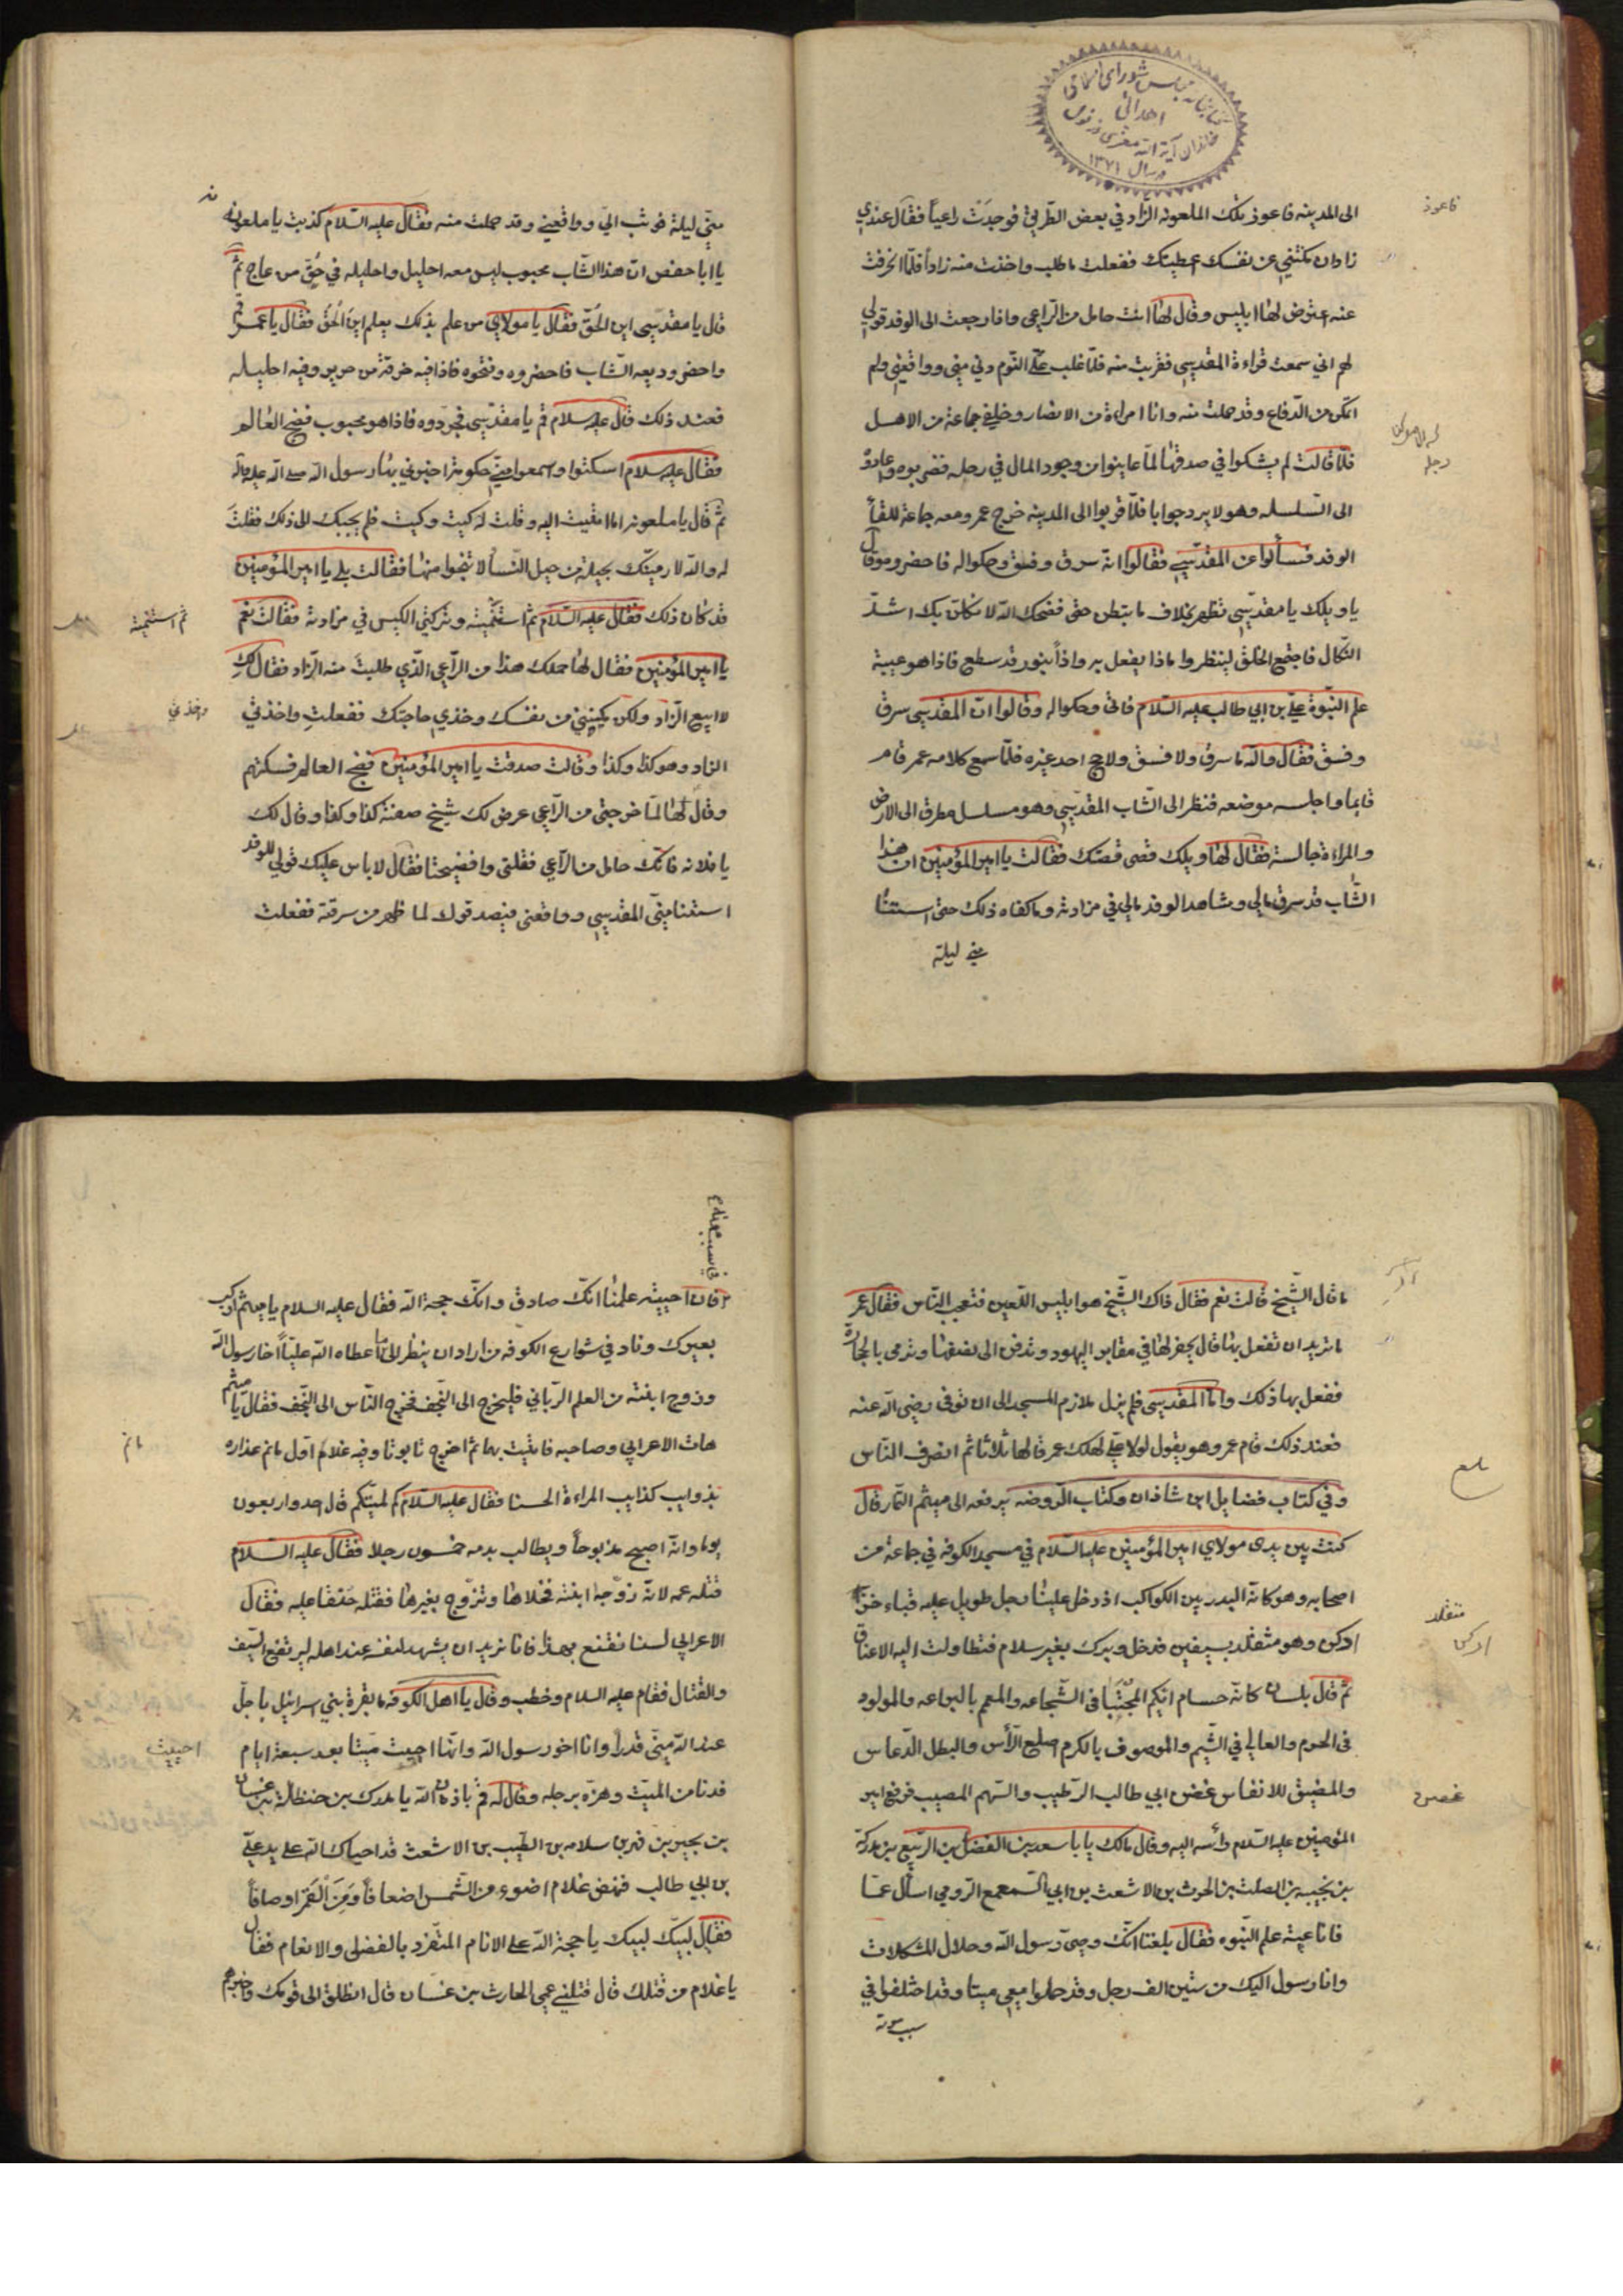 الى المدينه فاعوز تلك الملعونه الزاد في بعض الطريق فوجدت راعياً فقال عندي
زاد ان مكنتيني عن نفسك اعطيتك ففعلت ما طلب واخذت منه زاداً فلمّا انحرفت
عنه اعترض لها ابليس وقال لها انت حامل من الراعى وافا رجعت الى الوفد قولي
لهم اني سمعت قراءة المقدسي فقربت منه فلمّا غلب علىّ النوم دنى منى وواقعني ولم
اتمكن من الدّفاع وقد حملت منه وانا امراءة من الانصار وخلفي جماعة من الاهل
فلمّا قالت لم يشكوا في صدقها لمّا عاينوا من وجود المال في رحله فضربوه وعادوا
الى السلسله وهو لا يرد جوابا فلمّا قربوا الى المدينه خرج عمر ومعه جماعة للقاء
الوفد فسألوا عن المقدّسي فقالوا انّه سرق وفسق وحكوا له فاحضروه وقال
ياويلك يا مقدسي تظهر بخلاف ما تبطن حتى فضحك الله لانكلن بك اشدّ
النّكال فاجتمع الخلق لينظروا ماذا يفعل به واذاً بنور قد سطع فاذا هو عيبة
علم النّبوة علي بن ابي طالب عليه السّلام فاتى وحكوا له وقالوا انّ المقدسي سرق
وفسق فقال والله ما سرق ولا فسق ولا حج احد غيره فلمّا سمع كلامه عمر قام
قايما واجلسه موضعه فنظر الى الشّاب المقدّسي وهو مسلسل مطرق الى الارض
والمراءة جالسة فقال لها ويلك قصى قصتك فقالت يا امير المؤمنين ان هذا
الشّاب قد سرق مالي وشاهد الوفد مالي في مزادته وما كفاه ذلك حتى استتنا
مني ليلة
فاعوز
منّي ليلة فوثب اليّ وواقعني وقد حملت منه فقال عليه السّلام كذبت يا ملعونه
يا ابا حفص انّ هذا الشّاب مجبوب ليس معه احليل واحليله في حُقّ من عاج ثمّ
قال يا مقدسى اين الحُقّ فقال يا مولاي من علم بذلك يعلم اين الحُقّ فقال يا عمر قم
واحضر وديعه الشّاب فاحضروه وفتحوه فاذا فيه خرقة من حرير وفيه احليله
فعند ذلك قال عليه سلام قم يا مقدّسي فجرّدوه فاذا هو مجبوب فضج العالم
فقال عليه سلام اسكتوا واسمعوا منّي حكومة اخبرني بها رسول الله صلى الله عليه واله
ثمّ قال يا ملعونه اما اتيت اليه وقلت له كيت وكيت فلم يجبك الى ذلك فقلت
له والله لارمينّك بحيلة من حيل النّسا لا تنجوا منها فقالت بلى يا امير المؤمنين
قد كان ذلك فقال عليه السّلام ثمّ استنمتيه وتركتي الكيس في مزادته فقالت نعم
يا امير المؤمنين فقال لها حملك هذا من الرّاعي الّذي طلبت منه الزاد فقال لكِ
لا ابيع الزاد ولكن مكنيني من نفسك وخذي حاجتك ففعلت واخذتي
الزاد وهو كذا وكذا وقالت صدقت يا امير المؤمنين فضج العالم فسكنهم
وقال لها لمّا خرجتي من الرّاعي عرض لك شيخ صفته كذا وكذا وقال لك
يا فلانه فانّك حامل من الرّاعي فقلتي وافضيحتا فقال لا باس عليك قولي للوفد
استنا منّى المقدسي وواقعني فيصدقوك لما ظهر من سرقته ففعلت
ثم استنمتيه
واخذتي
ما قال الشّيخ قالت نعم فقال ذاك الشّيخ هو ابليس اللّعين فتعجب النّاس فقال عمر
ما تريد ان تفعل بها قال يحفر لها في مقابر اليهود وتدفن الى نصفها وترمى بالحجارة
ففعل بها ذلك وامّا المقدسي فلم يزل ملازم المسجد الى ان توفى رضى الله عنه
فعند ذلك قام عمر وهو يقول لولا علي لهلك عمر قالها ثلاثا ثم انصرف النّاس
وفي كتاب فضايل ابن شاذان وكتاب الرّوضه يرفعه الى ميثم التمّار قال
كنت بين يدى مولاي امير المؤمنين عليه السّلام في مسجد الكوفه في جماعة من
اصحابه وهو كانّه البدر بين الكواكب اذ دخل علينا رجل طويل عليه قباء خزّ
ادكن وهو متقلّد بسيفين فدخل وبرك بغير سلام فتطاولت اليه الاعناق
ثمّ قال بلسان كانّه حسام ايّكم المجتبا في الشّجاعه والمعمم بالبراعه والمولود
فى الحرم والعالي في الشّيم والموصوف بالكرم اصلع الرّأس والبطل الدّعاس
والمضيق للانفاس غصن ابي طالب الرّطيب والسّهم المصيب فرفع امير
المؤمنين عليه السّلام رأسه اليه وقال مالك يا با سعد بن الفضل بن الرّبيع بن مدركة
بن نجيبه بن الصلت بن الحرث بن الاشعث بن ابي السمعمع الرّومي اسأل عمّا
فانا عيبة علم النّبوه فقال بلغنا انّك وصىّ رسول الله وحلال المشكلات
وانا رسول اليك من ستين الف رجل وقد حملوا معى ميتا وقد اختلفوا في
سبب موته
متقلد
ادكن
غصن
فان احييته علمنا انّك صادق وانّك حجة الله فقال عليه السلام يا ميثم اركب
بعيرك وناد في شوارع الكوفه من اراد ان ينظر الى ما اعطاه الله عليّاً اخا رسول الله
وزوج ابنته من العلم الرّباني فليخرج الى النّجف فخرج النّاس الى النّجف فقال يا ميثم
هات الاعرابي وصاحبه فاتيت بهما ثم اخرج تابوتا وفيه غلام اول ما تم عذاره
بذوايب كذايب المراءة الحسنا فقال عليه السّلام كم لميتكم قال احد واربعون
يوما وانّه اصبح مذبوحاً ويطالب بدمه خمسون رجلا فقال عليه السلام
قتله عمه لانّه زوّجه ابنته فخلاها وتزوّج بغيرها فقتله حنقا عليه فقال
الاعرابي لسنا نقنع بهذا فانا نريد ان يشهد لنفسه عند اهله ليرتفع السّيف
والقتال فقام عليه السلام وخطب وقال يا اهل الكوفه ما بقرة بني اسرائيل باجلّ
عند الله منّي قدراً وانا اخو رسول الله وانّها احيت ميّتا بعد سبعة ايام
فدنا من الميّت وهزّه برجله وقال له قم باذن الله يا مدرك بن حنظلة بن غسان
بن بجير بن قهر بن سلامه بن الطّيب بن الاشعث قد احياك الله على يد علىّ
بن ابي طالب فنهض غلام اضوء من الشّمس اضعافاً ومن القمر اوصافاً
فقال لبيّك لبيك يا حجة الله على الانام المتفّرد بالفضل والانعام فقال
يا غلام من قتلك قال قتلني عمي الحارث بن غسّان قال انطلق الى قومك واخبرهم
احييت